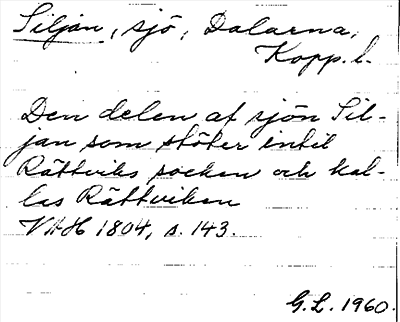 Siljan, sjö, Dalarna,
Kopp. l.
Den delen af sjön Sil-
jan som stöter intil
Rättviks socken och kal-
las Rättviken
VAH 1804, s. 143.
G.L. 1960.